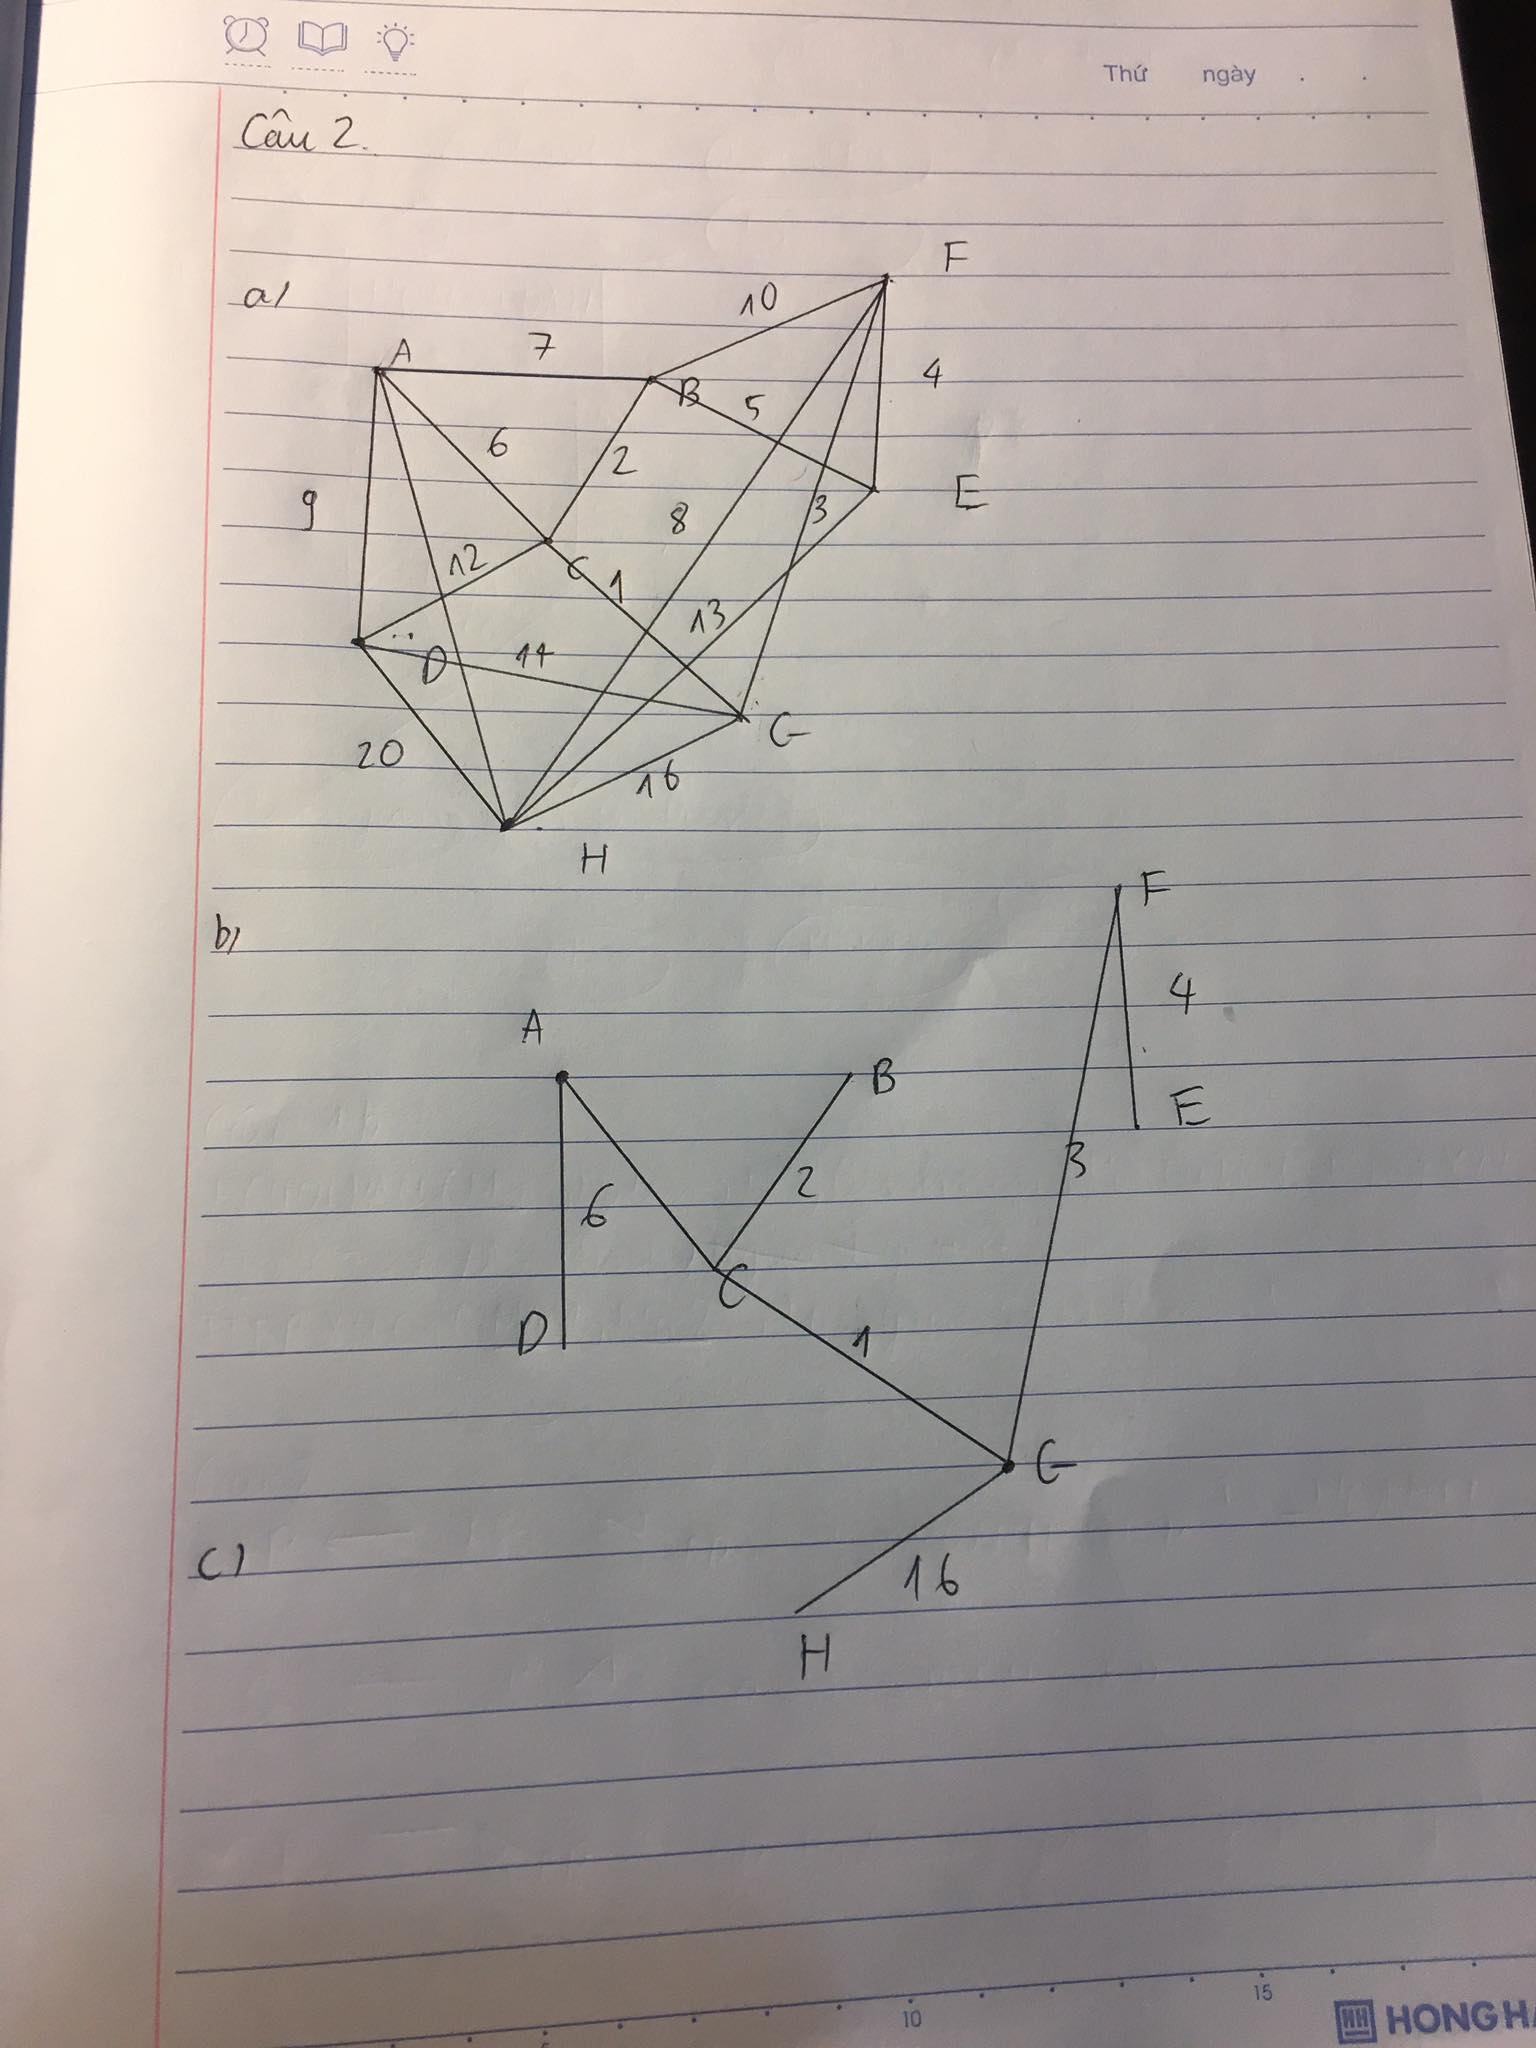 Thứ ngày . .
Câu 2.
a)
F
10
A
7
4
B
5
6
2
E
9
8
3
12
C
1
13
D
14
G
20
16
H
b)
F
4
A
B
E
3
2
6
C
D
1
G
c)
16
H
15
10
HONG HA